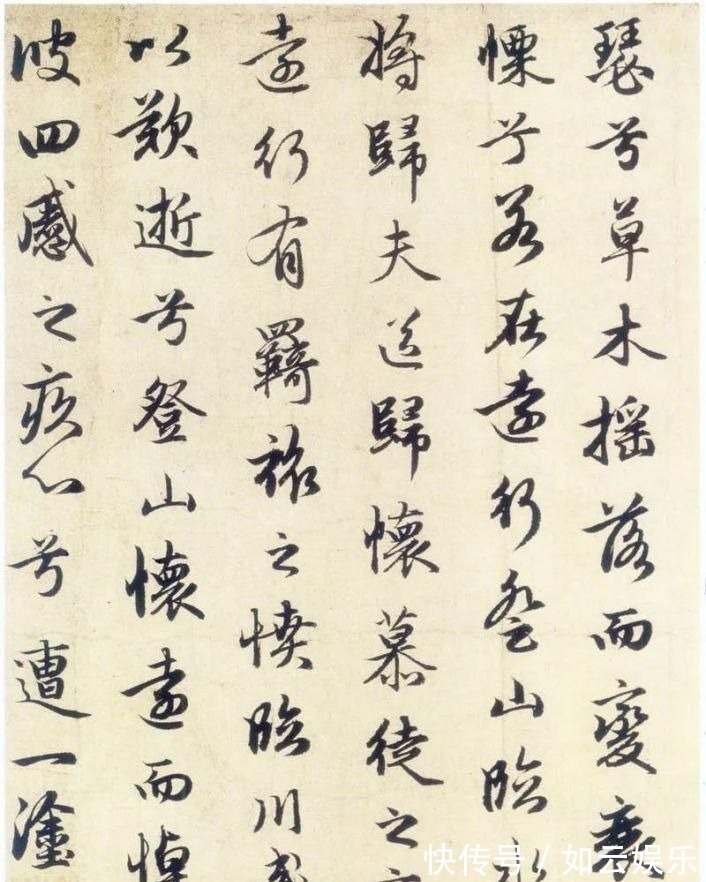 瑟兮草木摇落而變衰
慄兮若在遠行登山臨水
將歸夫送歸懷慕徒之
遠行有羇旅之憤臨川感
以歎逝兮登山懷遠而悼
彼四慼之疚心兮遭一塗
快传号/如云娱乐